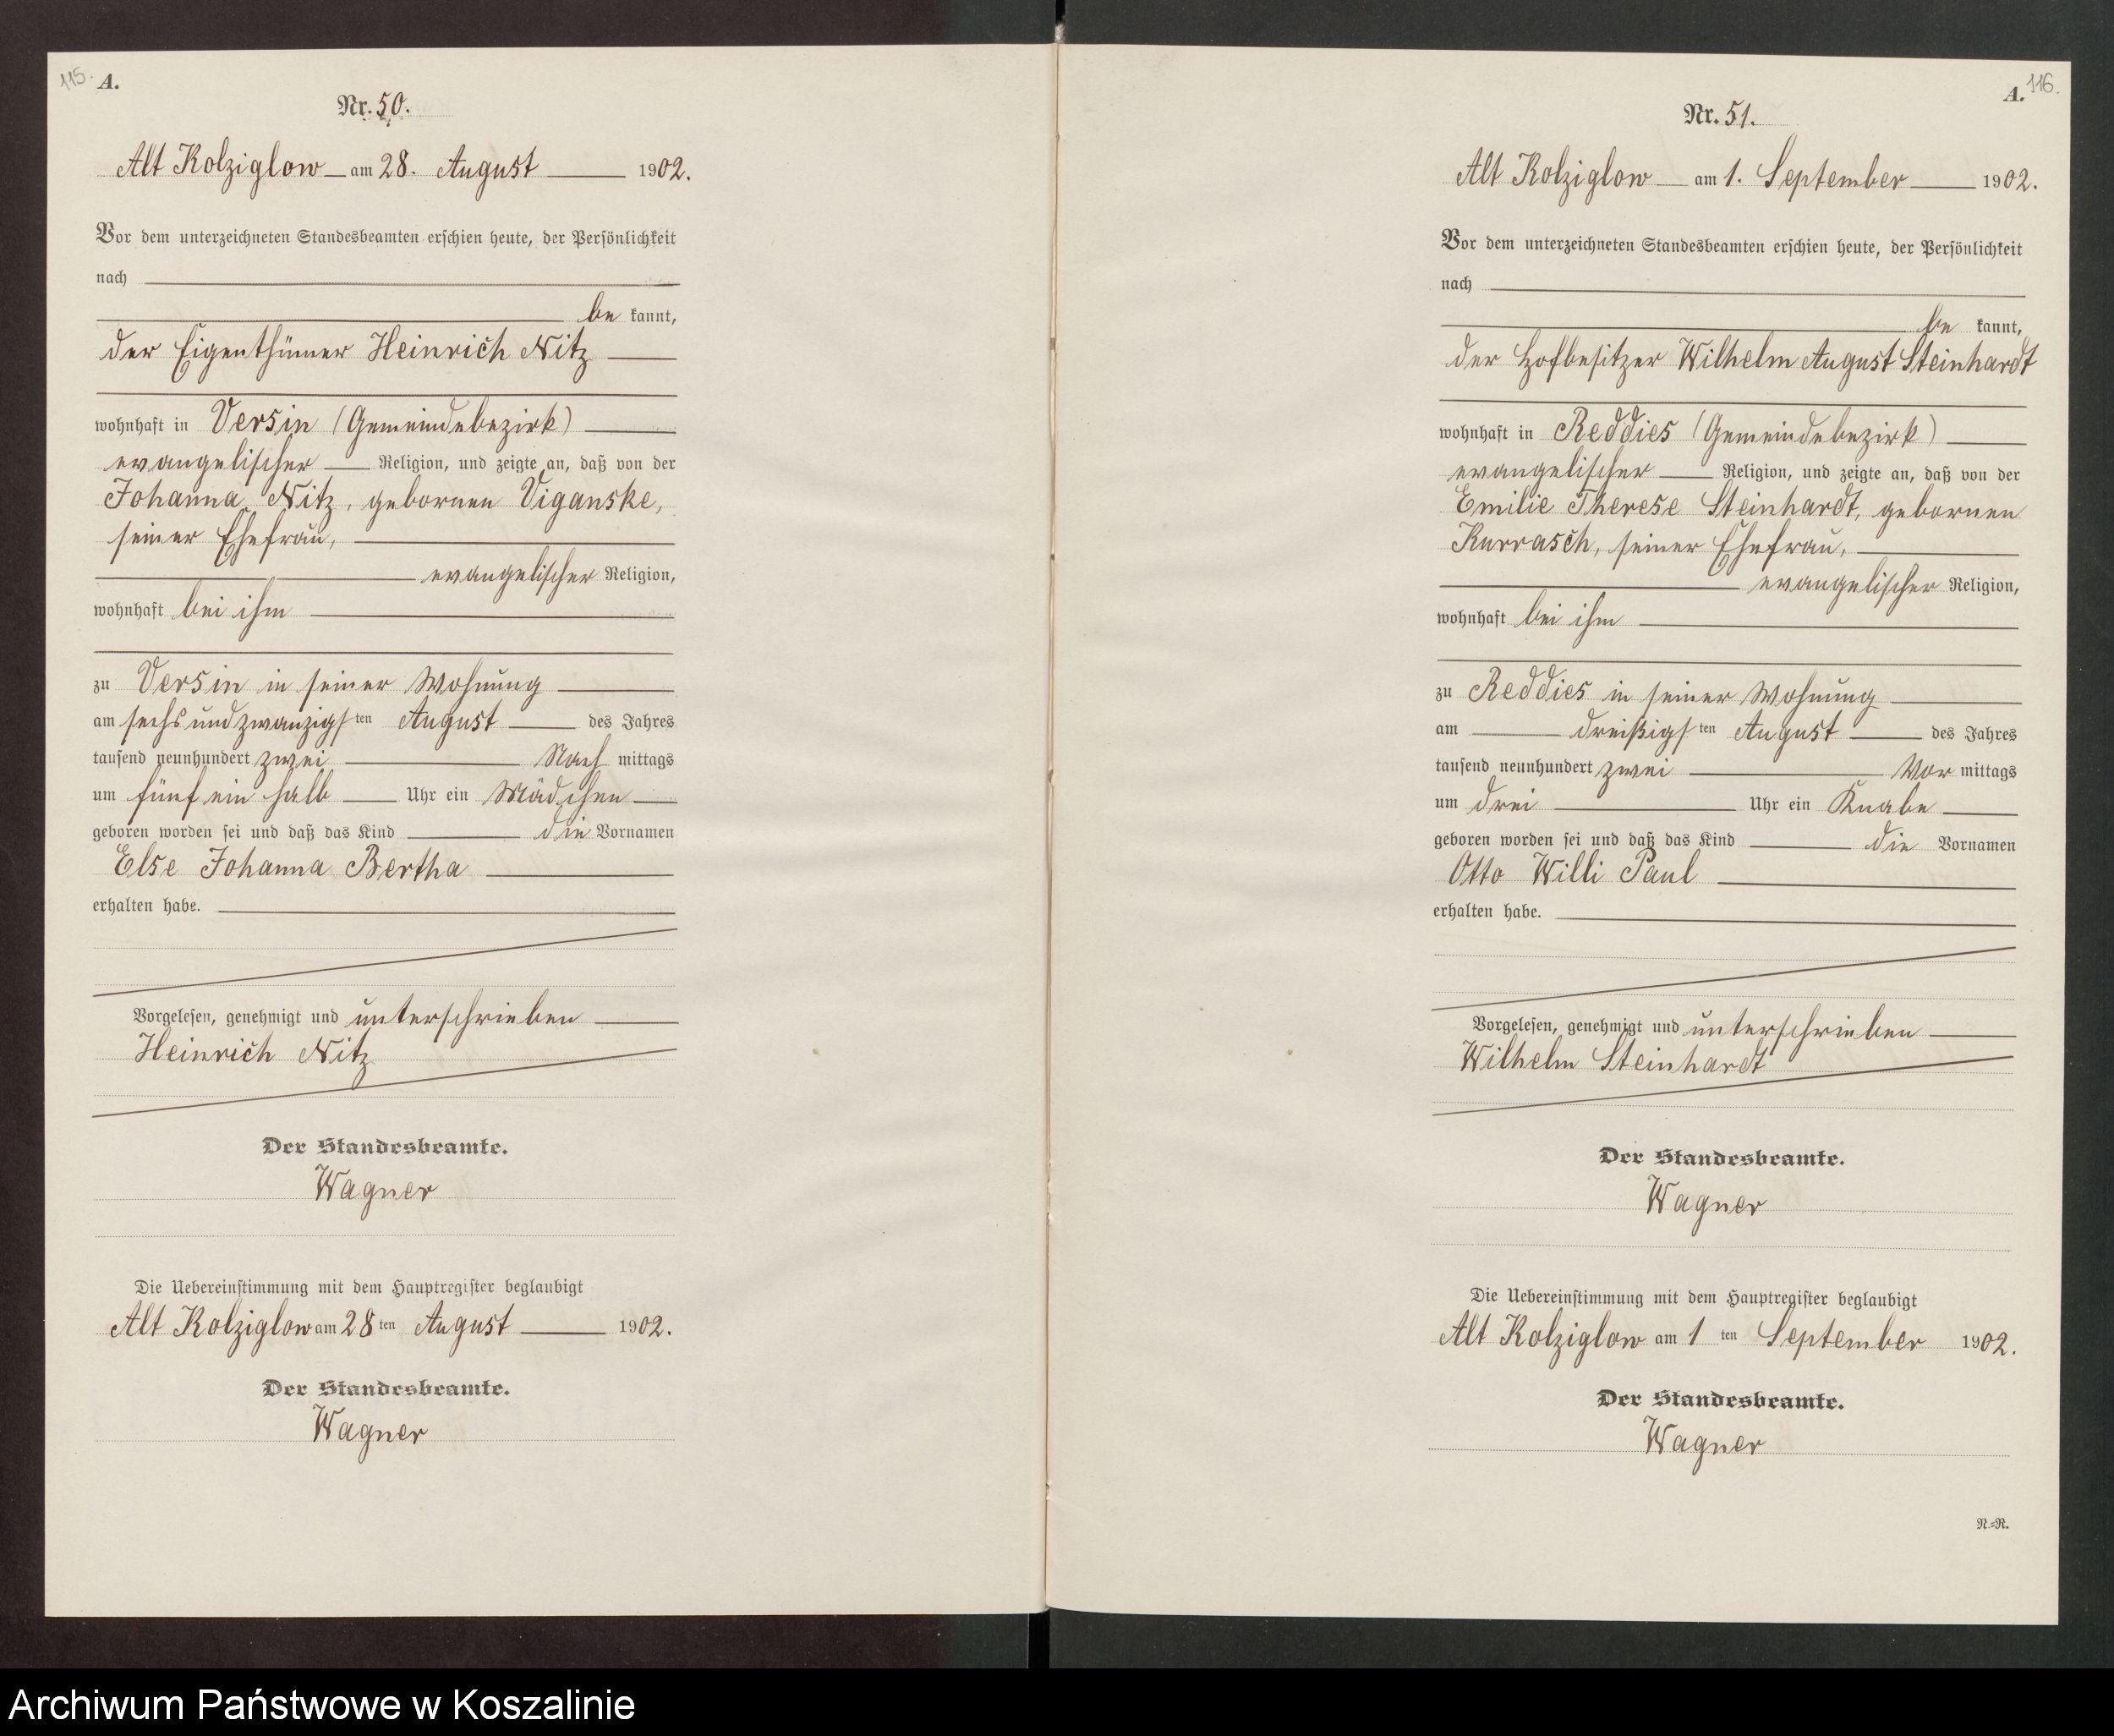 115.
A.
Nr. 50.
Alt Kolziglow am 28. August 1902.
Vor dem unterzeichneten Standesbeamten erschien heute, der Persönlichkeit
nach
be kannt,
der Eigenthümer Heinrich Nitz
wohnhaft in Versin (Gemeindebezirk)
evangelischer Religion, und zeigte an, daß von der
Johanna Nitz, gebornen Viganske,
seiner Ehefrau,
evangelischer Religion,
wohnhaft bei ihm
zu Versin in seiner Wohnung
am sechs und zwanzigsten August des Jahres
tausend neunhundert zwei Nach mittags
um fünf ein halb Uhr ein Mädchen
geboren worden sei und daß das Kind die Vornamen
Else Johanna Bertha
erhalten habe.
Vorgelesen, genehmigt und unterschrieben
Heinrich Nitz
Der Standesbeamte.
Wagner
Die Uebereinstimmung mit dem Hauptregister beglaubigt
Alt Kolziglow am 28 ten August 1902.
Der Standesbeamte.
Wagner
116.
A.
Nr. 51.
Alt Kolziglow am 1. September 1902.
Vor dem unterzeichneten Standesbeamten erschien heute, der Persönlichkeit
nach
be kannt,
der Hofbesitzer Wilhelm August Steinhardt
wohnhaft in Reddies (Gemeindebezirk)
evangelischer Religion, und zeigte an, daß von der
Emilie Therese Steinhardt, gebornen
Kurrasch, seiner Ehefrau,
evangelischer Religion,
wohnhaft bei ihm
zu Reddies in seiner Wohnung
am dreißigsten August des Jahres
tausend neunhundert zwei Vor mittags
um drei Uhr ein Knabe
geboren worden sei und daß das Kind die Vornamen
Otto Willi Paul
erhalten habe.
Vorgelesen, genehmigt und unterschrieben
Wilhelm Steinhardt
Der Standesbeamte.
Wagner
Die Uebereinstimmung mit dem Hauptregister beglaubigt
Alt Kolziglow am 1 ten September 1902.
Der Standesbeamte.
Wagner
N.-R.
Archiwum Państwowe w Koszalinie